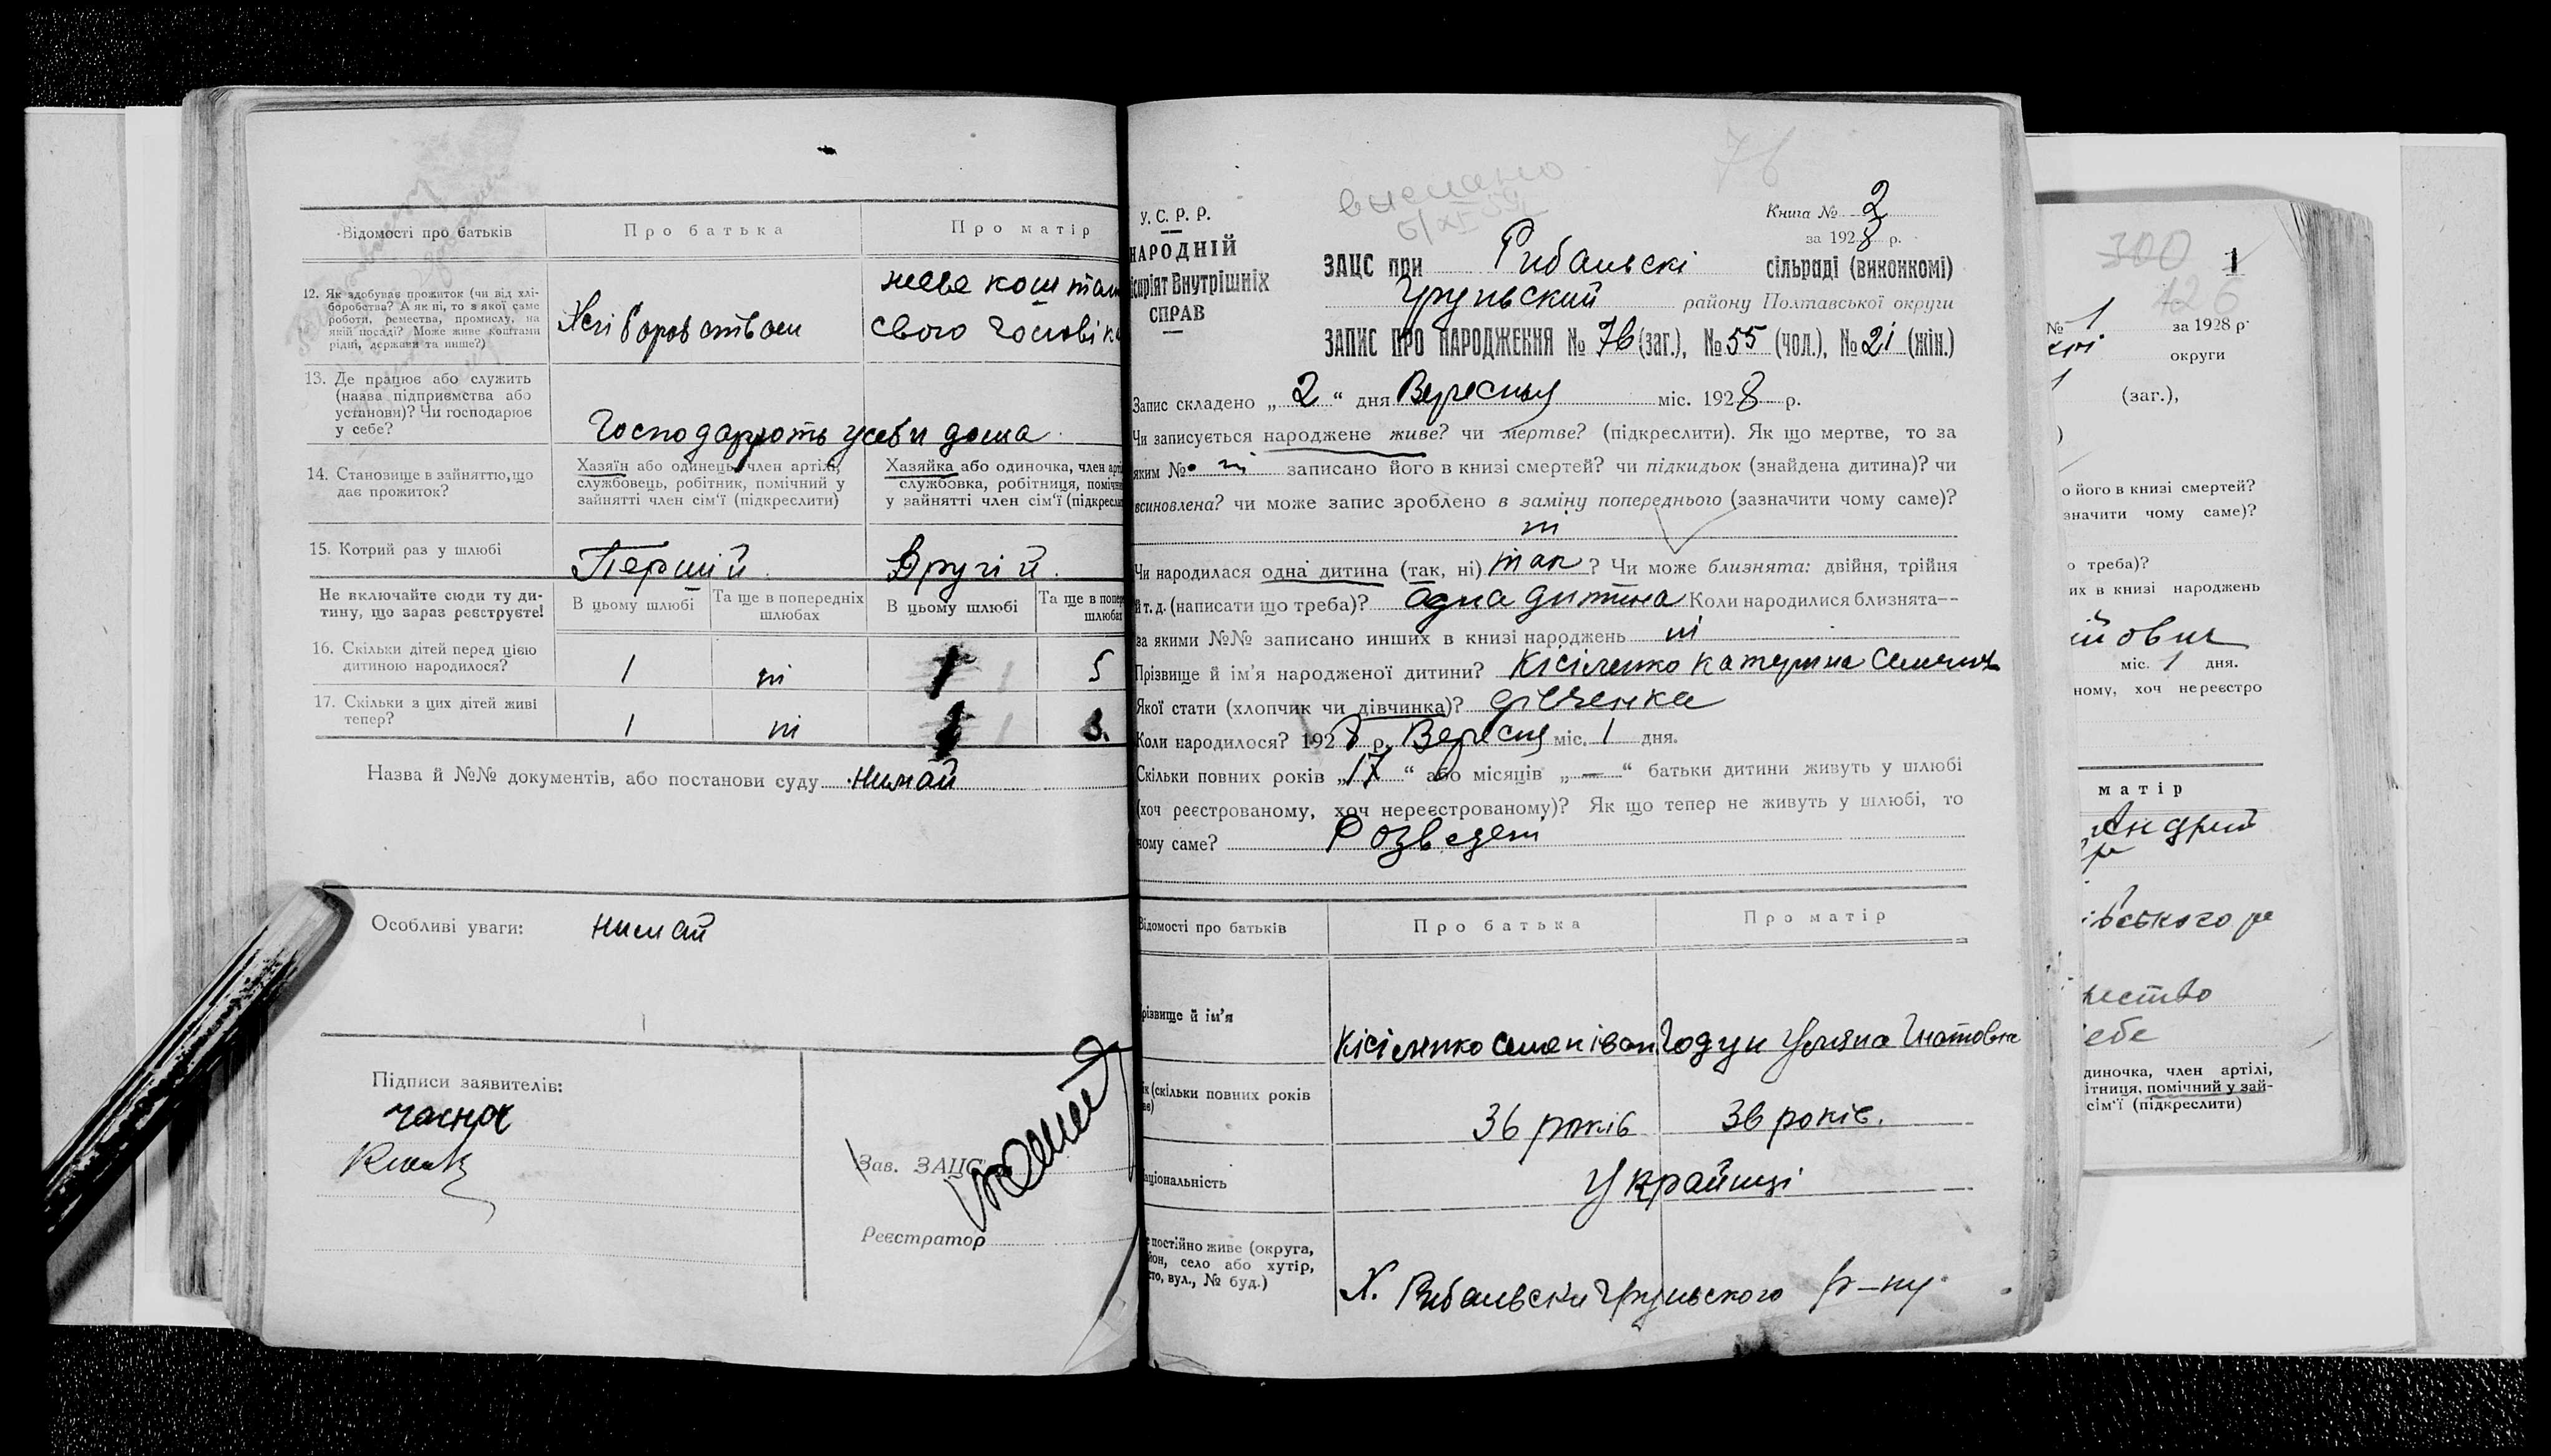 Відомості про батьків
Про батька
Про матір
12. Як здобуває прожиток (чи від хлі-
боробства? А як ні, то з якої саме
роботи, ремества, промислу, на
якій посаді? Може живе коштами
рідні, держави та инше?)
Хліборобством
живе коштам
свого чоловіка
13. Де працює або служить
(назва підприємства або
установи)? Чи господарює
у себе?
Господарюють усеби дома
14. Становище в зайняттю, що
дає прожиток?
Хазяїн або одинець, член артілі,
службовець, робітник, помічний у
зайнятті член сім'ї (підкреслити)
Хазяйка або одиночка, член арті
службовка, робітниця, помічн
у зайнятті член сім'ї (підкресли
15. Котрий раз у шлюбі
Першій
Другій
Не включайте сюди ту ди-
тину, що зараз реєструєте!
В цьому шлюбі
Та ще в попередніх
шлюбах
В цьому шлюбі
Та ще в попер
шлюбах
16. Скільки дітей перед цією
дитиною народилося?
1
ні
1
5
17. Скільки з цих дітей живі
тепер?
1
ні
1
3.
Назва й №№ документів, або постанови суду нимай
Особливі уваги: нимай
Підписи заявителів:
Зав. ЗАЦС
Реєстратор
76
У. С. Р. Р.
НАРОДНІЙ
ісаріят Внутрішніх
СПРАВ
Книга № 2
за 1928 р.
ЗАЦС при Рибальскі сільраді (виконкомі)
Грунський району Полтавської округи
ЗАПИС ПРО НАРОДЖЕННЯ № 76 (заг.), № 55 (чол.), № 21 (жін.)
Запис складено „2“ дня Вересня міс. 1928 р.
Чи записується народжене живе? чи мертве? (підкреслити). Як що мертве, то за
яким № ні записано його в книзі смертей? чи підкидьок (знайдена дитина)? чи
всиновлена? чи може запис зроблено в заміну попереднього (зазначити чому саме)?
ні
Чи народилася одна дитина (так, ні) так? Чи може близнята: двійня, трійня
й т. д. (написати що треба)? одна дитина Коли народилися близнята—
за якими №№ записано инших в книзі народжень ні
Прізвище й ім'я народженої дитини? Кісіленко Катерина
Якої стати (хлопчик чи дівчинка)? дівченка
Коли народилося? 1928 р. Вересня міс. 1 дня.
Скільки повних років „17“ або місяців „—“ батьки дитини живуть у шлюбі
(хоч реєстрованому, хоч нереєстрованому)? Як що тепер не живуть у шлюбі, то
чому саме?
Відомості про батьків
Про батька
Про матір
різвище й ім'я
Кісіленко Семен Іван
Годун Уляна Гнатовна
ік (скільки повних років
36 років
36 років.
аціональність
Украйнці
е постійно живе (округа,
йон, село або хутір,
сто, вул., № буд.)
Х. Рибальски Грунського р-ну
300
1
126
№ 1
за 1928 р.
округи
(заг.),
о його в книзі смертей?
значити чому саме)?
о треба)?
их в книзі народжень
міс. 1 дня.
ному, хоч нереєстро
матір
диночка, член артілі,
ітниця, помічний у зай-
сім'ї (підкреслити)